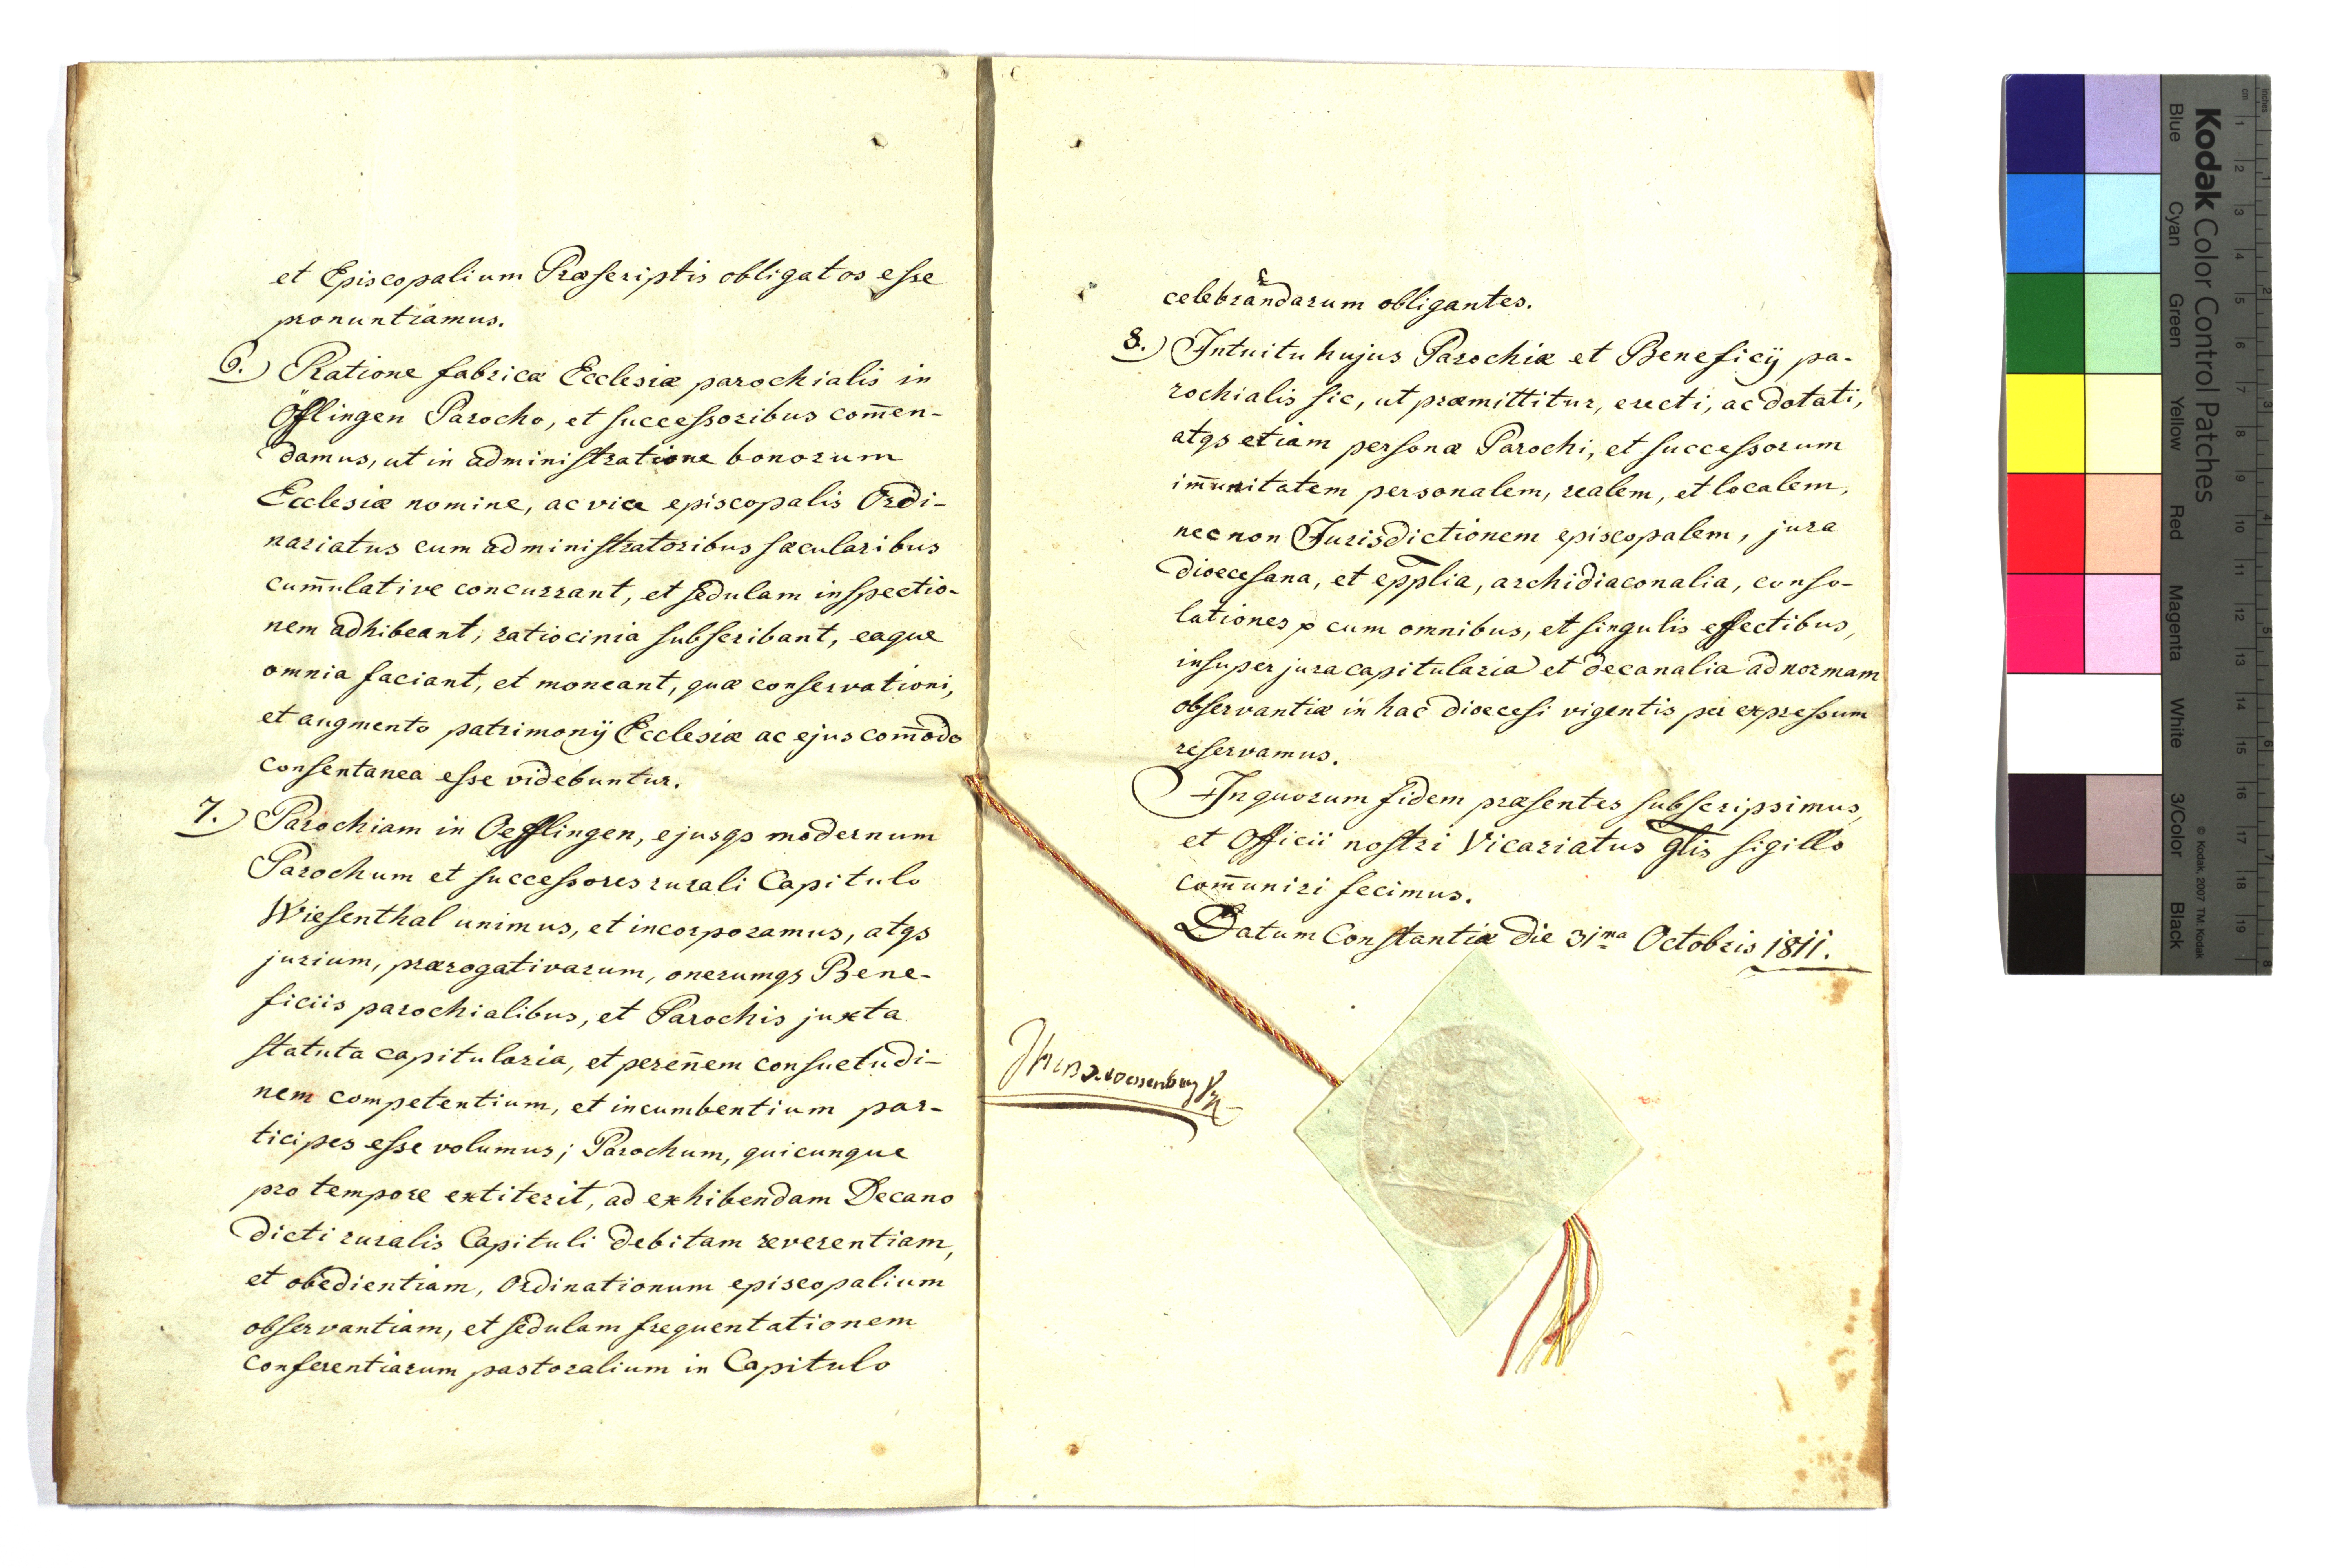 et Episcopalium Præscriptis obligatos esse
pronuntiamus.
6.) Ratione fabricæ Ecclesiæ parochialis in
Öfflingen Parocho, et successoribus com̄en-
damus, ut in administratione bonorum
Ecclesiæ nomine, ac vice episcopalis Ordi-
nariatus cum administratoribus sæcularibus
cum̄ulative concurrant, et sedulam inspectio-
nem adhibeant, ratiocinia subscribant, eaque
omnia faciant, et moneant, quæ conservationi,
et augmento patrimonij Ecclesiæ ac ejus com̄odo
consentanea esse videbuntur.
7.) Parochiam in Oefflingen, ejusqs modernum
Parochum et successores rurali Capitulo
Wiesenthal unimus, et incorporamus, atqs
jurium, prærogativarum, onerumqs Bene-
ficiis parochialibus, et Parochis juxta
statuta capitularia, et peren̄em consuetudi-
nem competentium, et incumbentium par-
ticipes esse volumus; Parochum, quicunque
pro tempore extiterit, ad exhibendam Decano
dicti ruralis Capituli debitam reverentiam,
et obedientiam, Ordinationum episcopalium
observantiam, et sedulam frequentationem
Conferentiarum pastoralium in Capitulo
celebrandarum obligantes.
8.) Intuitu hujus Parochiæ et Beneficij pa-
rochialis sic, ut præmittitur, erecti, ac dotati,
atqs etiam personæ Parochi, et successorum
im̄unitatem personalem, realem, et localem,
nec non Jurisdictionem episcopalem, jura
dioecesana, et epplia, archidiaconalia, conso-
lationes cum omnibus, et singulis effectibus,
insuper jura capitularia et decanalia ad normam
observantiæ in hac dioecesi vigentis per expressum
reservamus.
In quorum fidem præsentes subscripsimus,
et Officii nostri Vicariatus glis sigillo
com̄uniri fecimus.
Datum Constantiæ die 31ma Octobris 1811.
v. Wessenberg
Kodak Color Control Patches
Blue Cyan Green Yellow Red Magenta White 3/Color Black
© Kodak, 2007 TM: Kodak
cm 1 2 3 4 5 6 7 8 9 10 11 12 13 14 15 16 17 18 19
inches 1 2 3 4 5 6 7 8